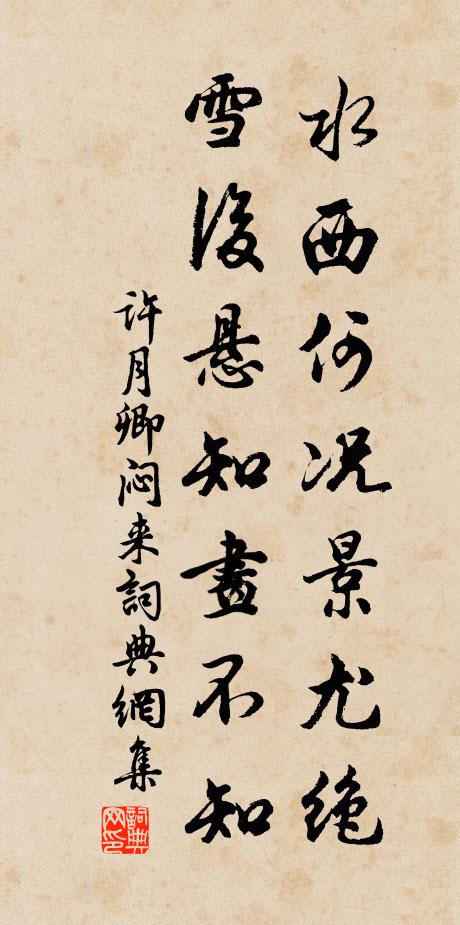 水西何况景尤绝
雪後悬知畫不知
许月卿闷来詞典網集
詞典
网印